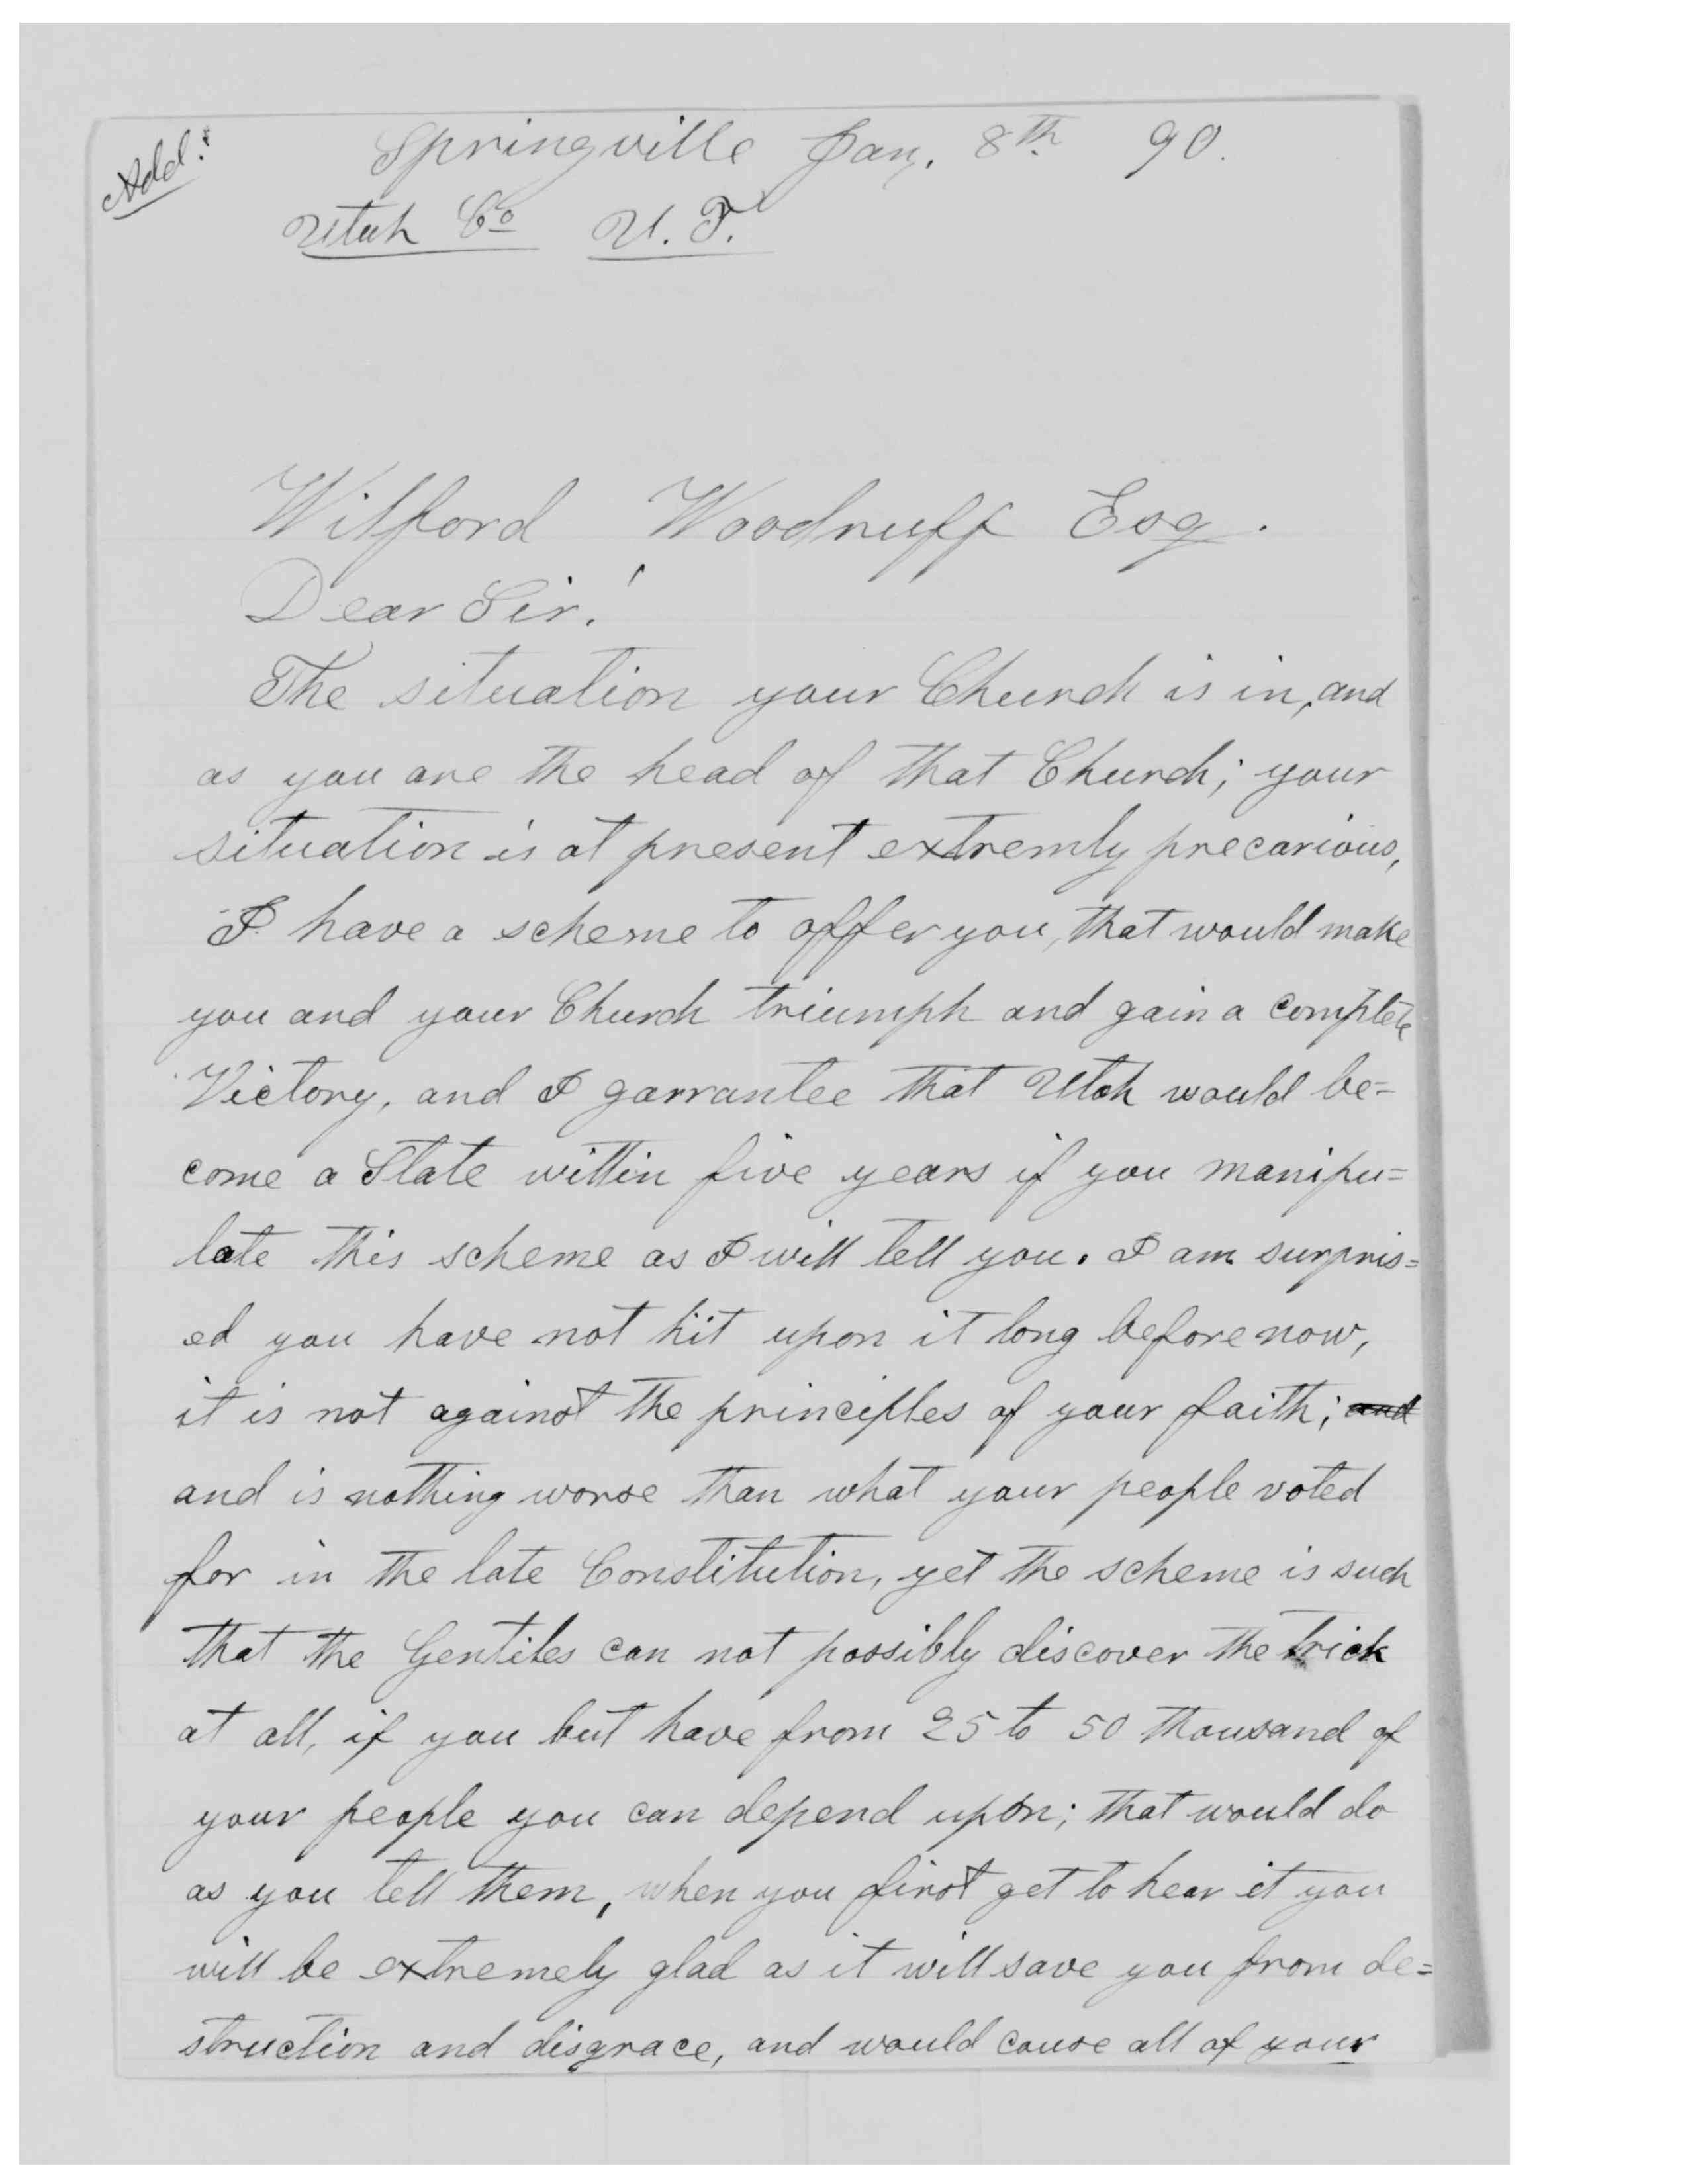 Add:
Springville Jan. 8th 90.
Utah Co U. T.
Wilford Woodruff Esq.
Dear Sir!
The situation your Church is in, and
as you are the head of that Church; your
situation is at present extremly precarious,
I have a scheme to offer you, that would make
you and your Church triumph and gain a complete
Victory, and I garrantee that Utah would be=
come a State within five years if you manipu=
late this scheme as I will tell you. I am surpris=
ed you have not hit upon it long before now,
it is not against the principles of your faith; and
and is nothing worse than what your people voted
for in the late Constitution, yet the scheme is such
that the Gentiles can not possibly discover the trick
at all, if you but have from 25 to 50 thousand of
your people you can depend upon; that would do
as you tell them, when you first get to hear it you
will be extremely glad as it will save you from de=
struction and disgrace, and would cause all of your